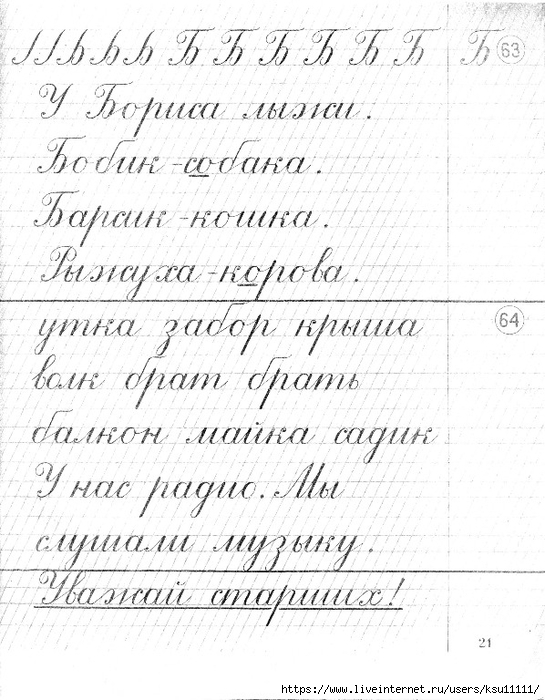 Б Б Б Б Б Б Б 63
У Бориса лыжи.
Бобик - собака.
Барсик - кошка.
Рыжуха - корова.
утка забор крыша 64
волк брат брать
балкон майка садик
У нас радио. Мы
слушали музыку.
Уважай старших!
21
https://www.liveinternet.ru/users/ksu11111/